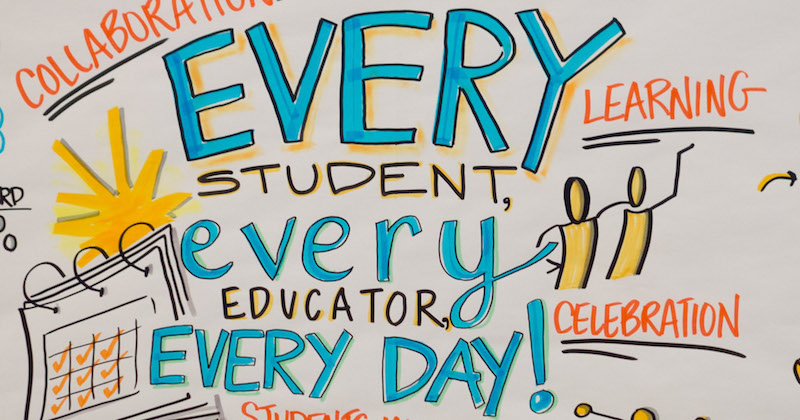 COLLABORATION
EVERY
LEARNING
STUDENT,
RD
every
EDUCATOR,
CELEBRATION
EVERY DAY!
STUDENTS